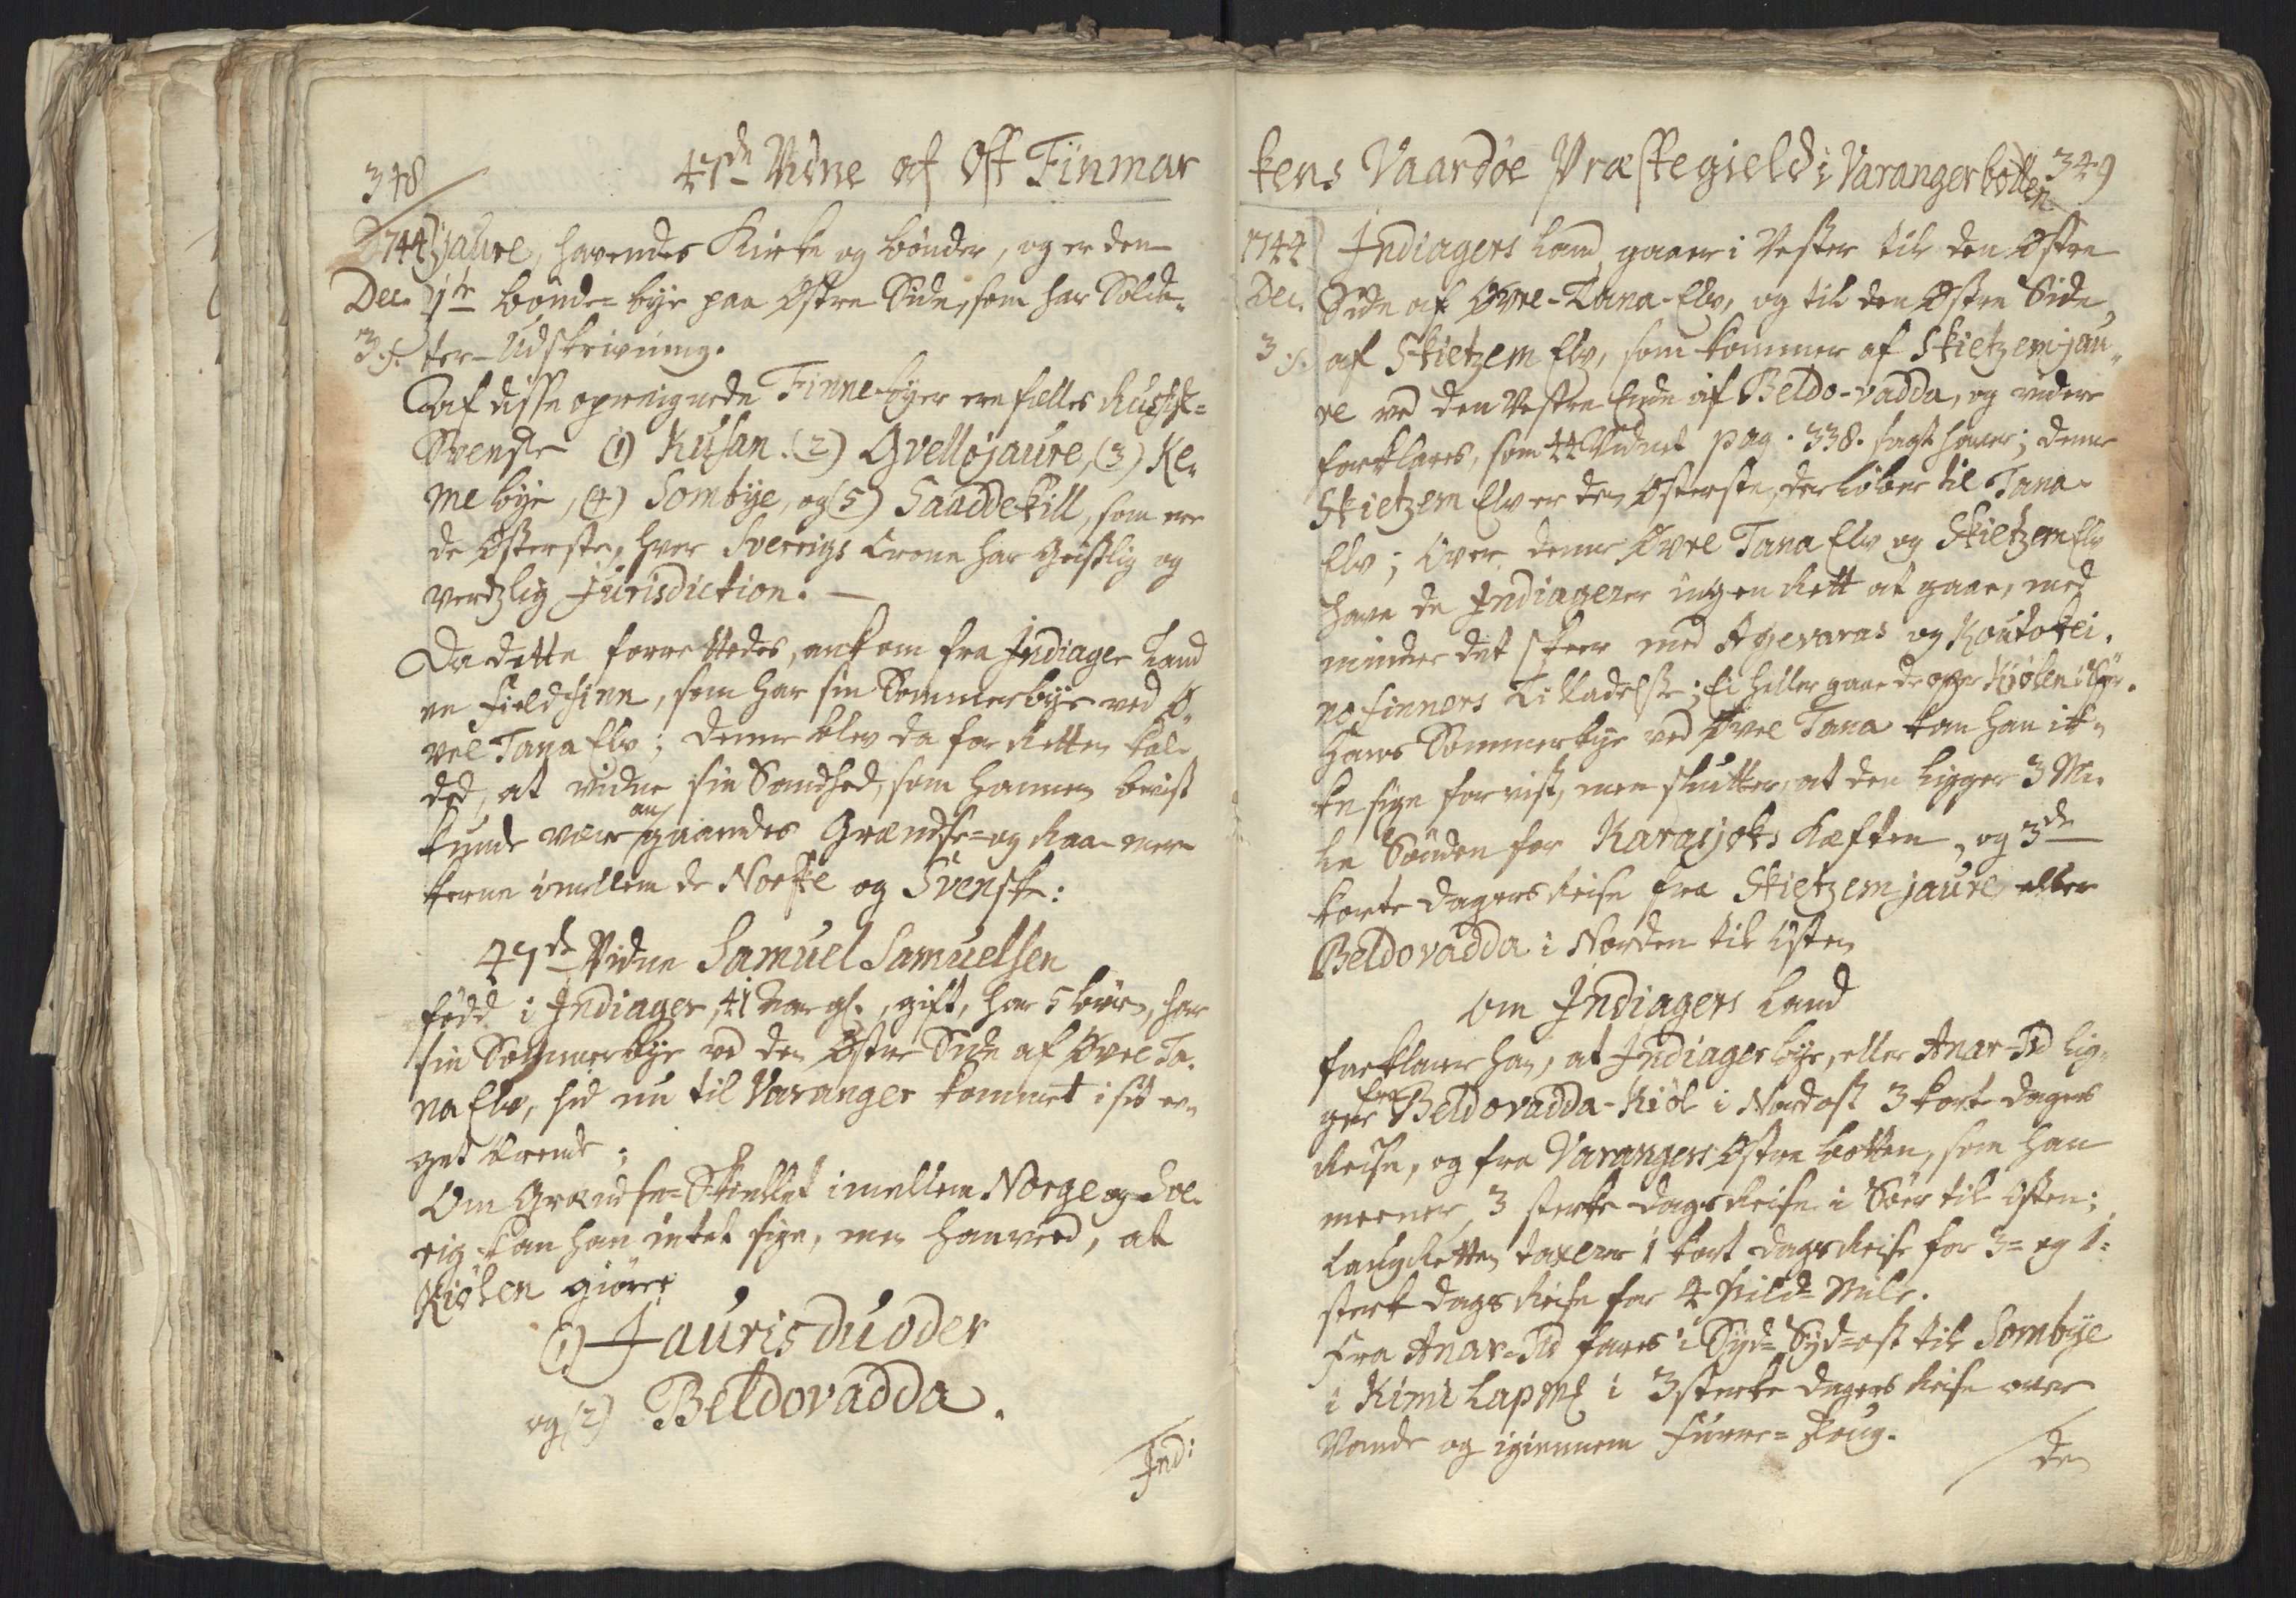 348
47de Vidne af Ost Finmar
1744 jaure, havendes Kirke og bönder, og er den
Dec. 1te bönde-bye paa Østre Side, som har Solda-
3. f. ter-Udskrivning.
Af disse opregnede Finne-byer ere fælles Russisk-
Svenske (1) Kusan. (2) Gvelløjaure, (3) Ke-
me bye, (4) Sombye, og (5) Saaddekill, som ere
de Østerste, hvor Sverrigs Crone har Geistlig og
verdzlig Jurisdiction.
Da dette forrettedes, ankom fra Indiager Land
en Fieldfinn, som har sin Sommerbye ved Ø-
vre Tana Elv; denne blev da for Retten kal-
ded, at vidne sin Sandhed, som hannem bevist
kunde være an gaaendes Grændse- og Raa-mer-
kerne imellem de Norske og Svenske:
47de Vidne Samuel Samuelsen
född i Indiager, 41 Aar gl., gift, har 5 börn, har
sin Sommerbye ved den Østre Side af Øvre Ta-
na Elv, hid nu til Varanger kommet i sit e-
get Ærende;
Om Grændse-Skiellet imellem Norge og Sve-
rig kan han intet sige, men han veed, at
Kiölen giörer
(1) Jaurisduøder
og (2) Beldovadda.
Indi
kens Vaardöe Præstegield i Varangerbotten
349
1744 Indiagers Land gaaer i Vester til den Østre
Dec. Side af Øvre-Tana-Elv, og til den Østre Side
3. f. af Skietzem Elv, som kommer af Skietzemjau-
re ved den Vestre Ende af Beldo-vadda, og videre
forklares, som 44 Vidnet pag. 338. sagt haver; denne
Skietzem Elv er den Østerste, der löber til Tana-
Elv; Over denne Øvre Tana Elv og Skietzem Elv
have de Indiagerer ingen Rett at gaae, med
mindre det skeer med Agevaras og Koutokei-
no Finners Tilladelse; Ei heller gaae de over Kiölen ilfør.
Hans Sommerbye ved Øvre Tana kan han ik-
ke sige for vist, men slutter, at den ligger 3 Mi-
le Sønden for Karasjoks Kæften, og 3de
korte dagers Reise fra Skietzemjaure, eller
Beldovadda i Norden til Østen
om Indiagers Land
forklarer han, at Indiager bye, eller Anar-Sid lig-
ger fra Beldovadda-Kiöl i Nordost 3 korte dagers
Reise, og fra Varangers Østre Botten, som han
meener, 3 sterke dags Reiser i Sör til Østen;
Laug Retten taxerer 1 kort dags Reise for 3- og 1-
sterk dags Reise for 4 Field-Mile.
Fra Anar-Sid fares i Syd-Syd-ost til Sombye
i Kimi Lapmk i 3 sterke dagers Reise over
Vande og igiennem Furre-Skoug.
den